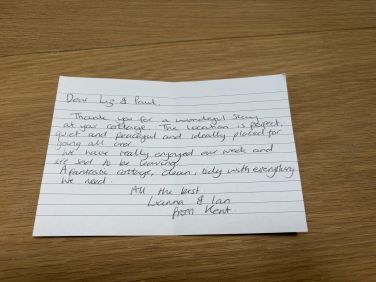 Dear Liz & Paul.
Thank you for a wonderful stay
at your cottage. The location is perfect,
quiet and peaceful and ideally placed for
going all over
We have really enjoyed our week and
are sad to be leaving.
A fantastic cottage, clean, with everything
we need
All the best
& Ian
from Kent